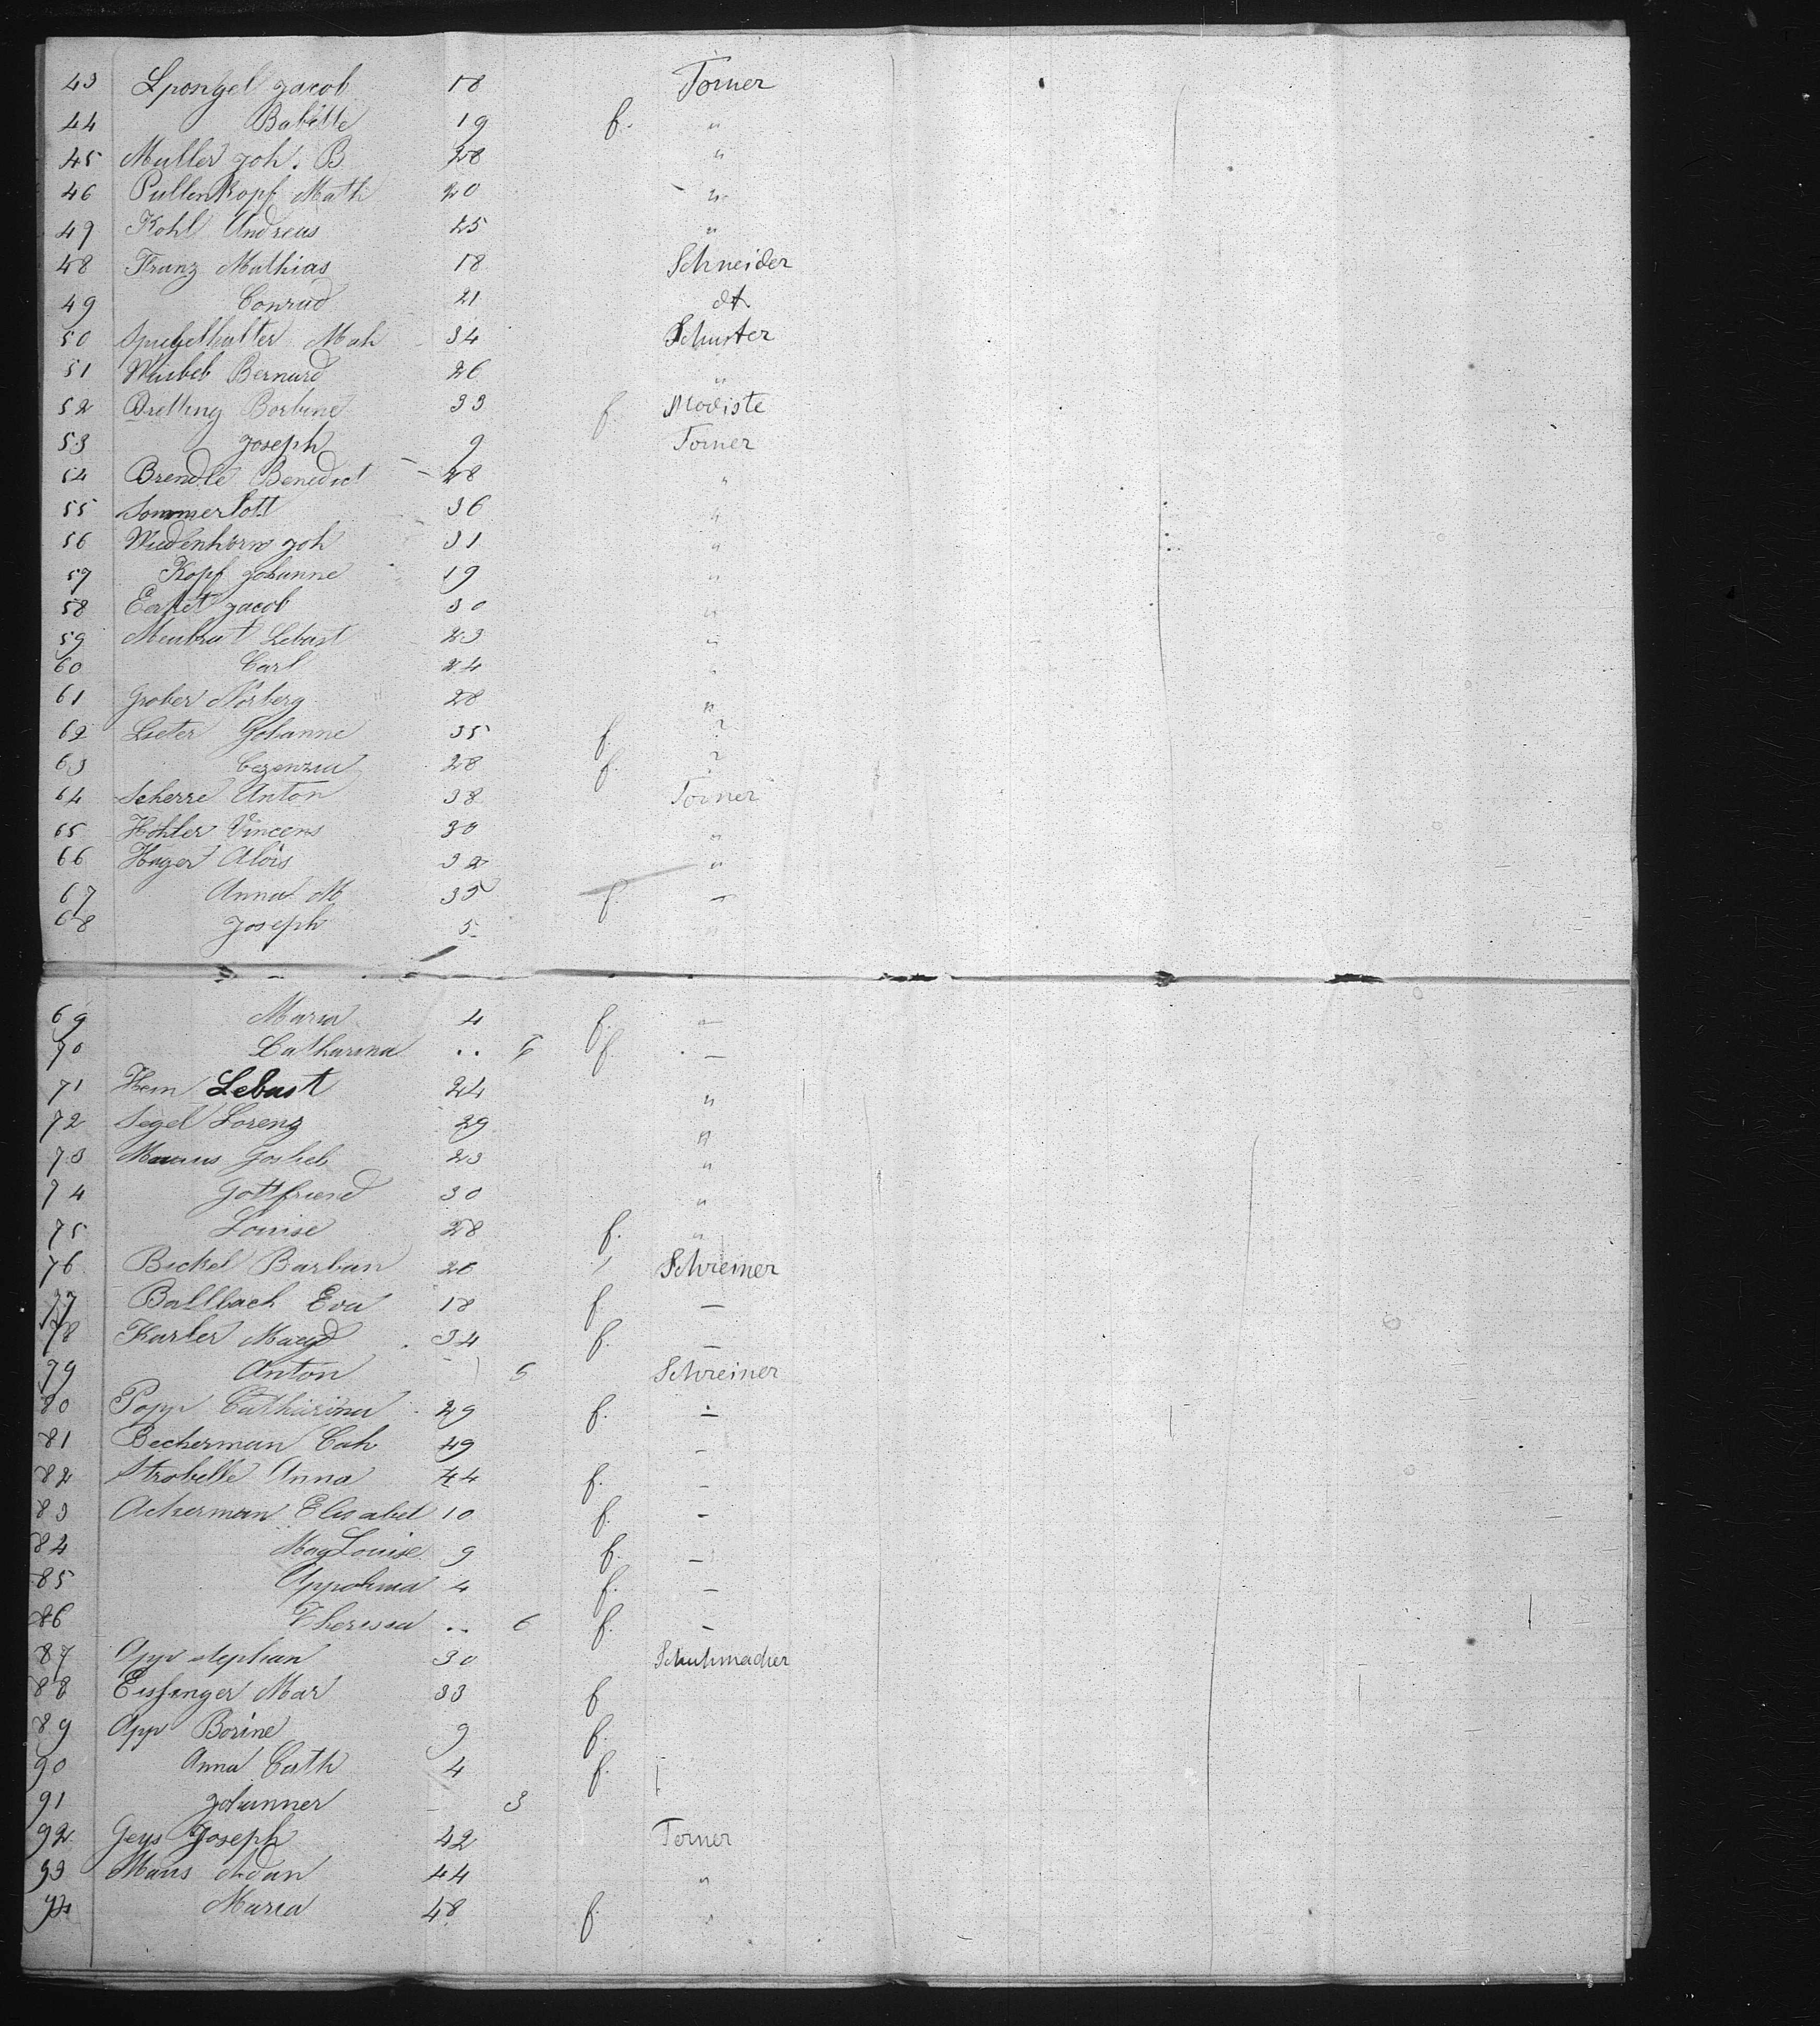 43 Spongel Jacob 18 Torner
44 Babette 19 f. "
45 Muller Joh. B 28 "
46 Pullenkopf Math 20 "
49 Kohl Andreas 25 "
48 Franz Mathias 18 Schneider
49 Conrad 21 dt.
50 Spigelhalter Mah 34 Schuster
51 Bernard 26 "
52 Dretting Borbine 33 f. Modiste
53 Joseph 9 Torner
54 Brendle Benedict 28 "
55 Sommerlott 36 "
56 Wiedenhorn Joh 31 "
57 Kopf Johanne 19 "
58 Jacob 30 "
59 Sebast 23 "
60 Carl 24 "
61 Grober Norberg 28 "
62 Lieter Johanne 35 f. ?
63 28 f. ?
64 Scherre Anton 38 Torner
65 Hohler Vincens 30 "
66 Hager Alois 32 "
67 Anna M 35 f. –
68 Joseph 5
69 Maria 4 f. –
70 Catharina .. 5 f. –
71 Hem Sebast 24 "
72 Segel Lorenz 29 "
73 Maurus 23 "
74 Gottfriend 30 "
75 Louise 28 f. "
76 Bickel Barban 26 Schreiner
77 Ballbach Eva 18 f. –
78 Karler Magd 34 f. –
79 Anton – 5 Schreiner
80 Popp Catharina 29 f. –
81 Beckerman Cah 49 –
82 Strobelle Anna 44 f. –
83 Ackerman Elisabet 10 f. –
84 Mag Louise 9 f. –
85 Appolnia 4 f. –
86 Theresia .. 6 f. –
87 App stephan 30 Schuhmacher
88 Eisfinger Mar 33 f
89 App Borine 9 f.
90 Anna Cath 4 f.
91 Johanner – 3
92 Geys Joseph 42 Torner
93 Maus Adan 44 "
94 Maria 48 f. "